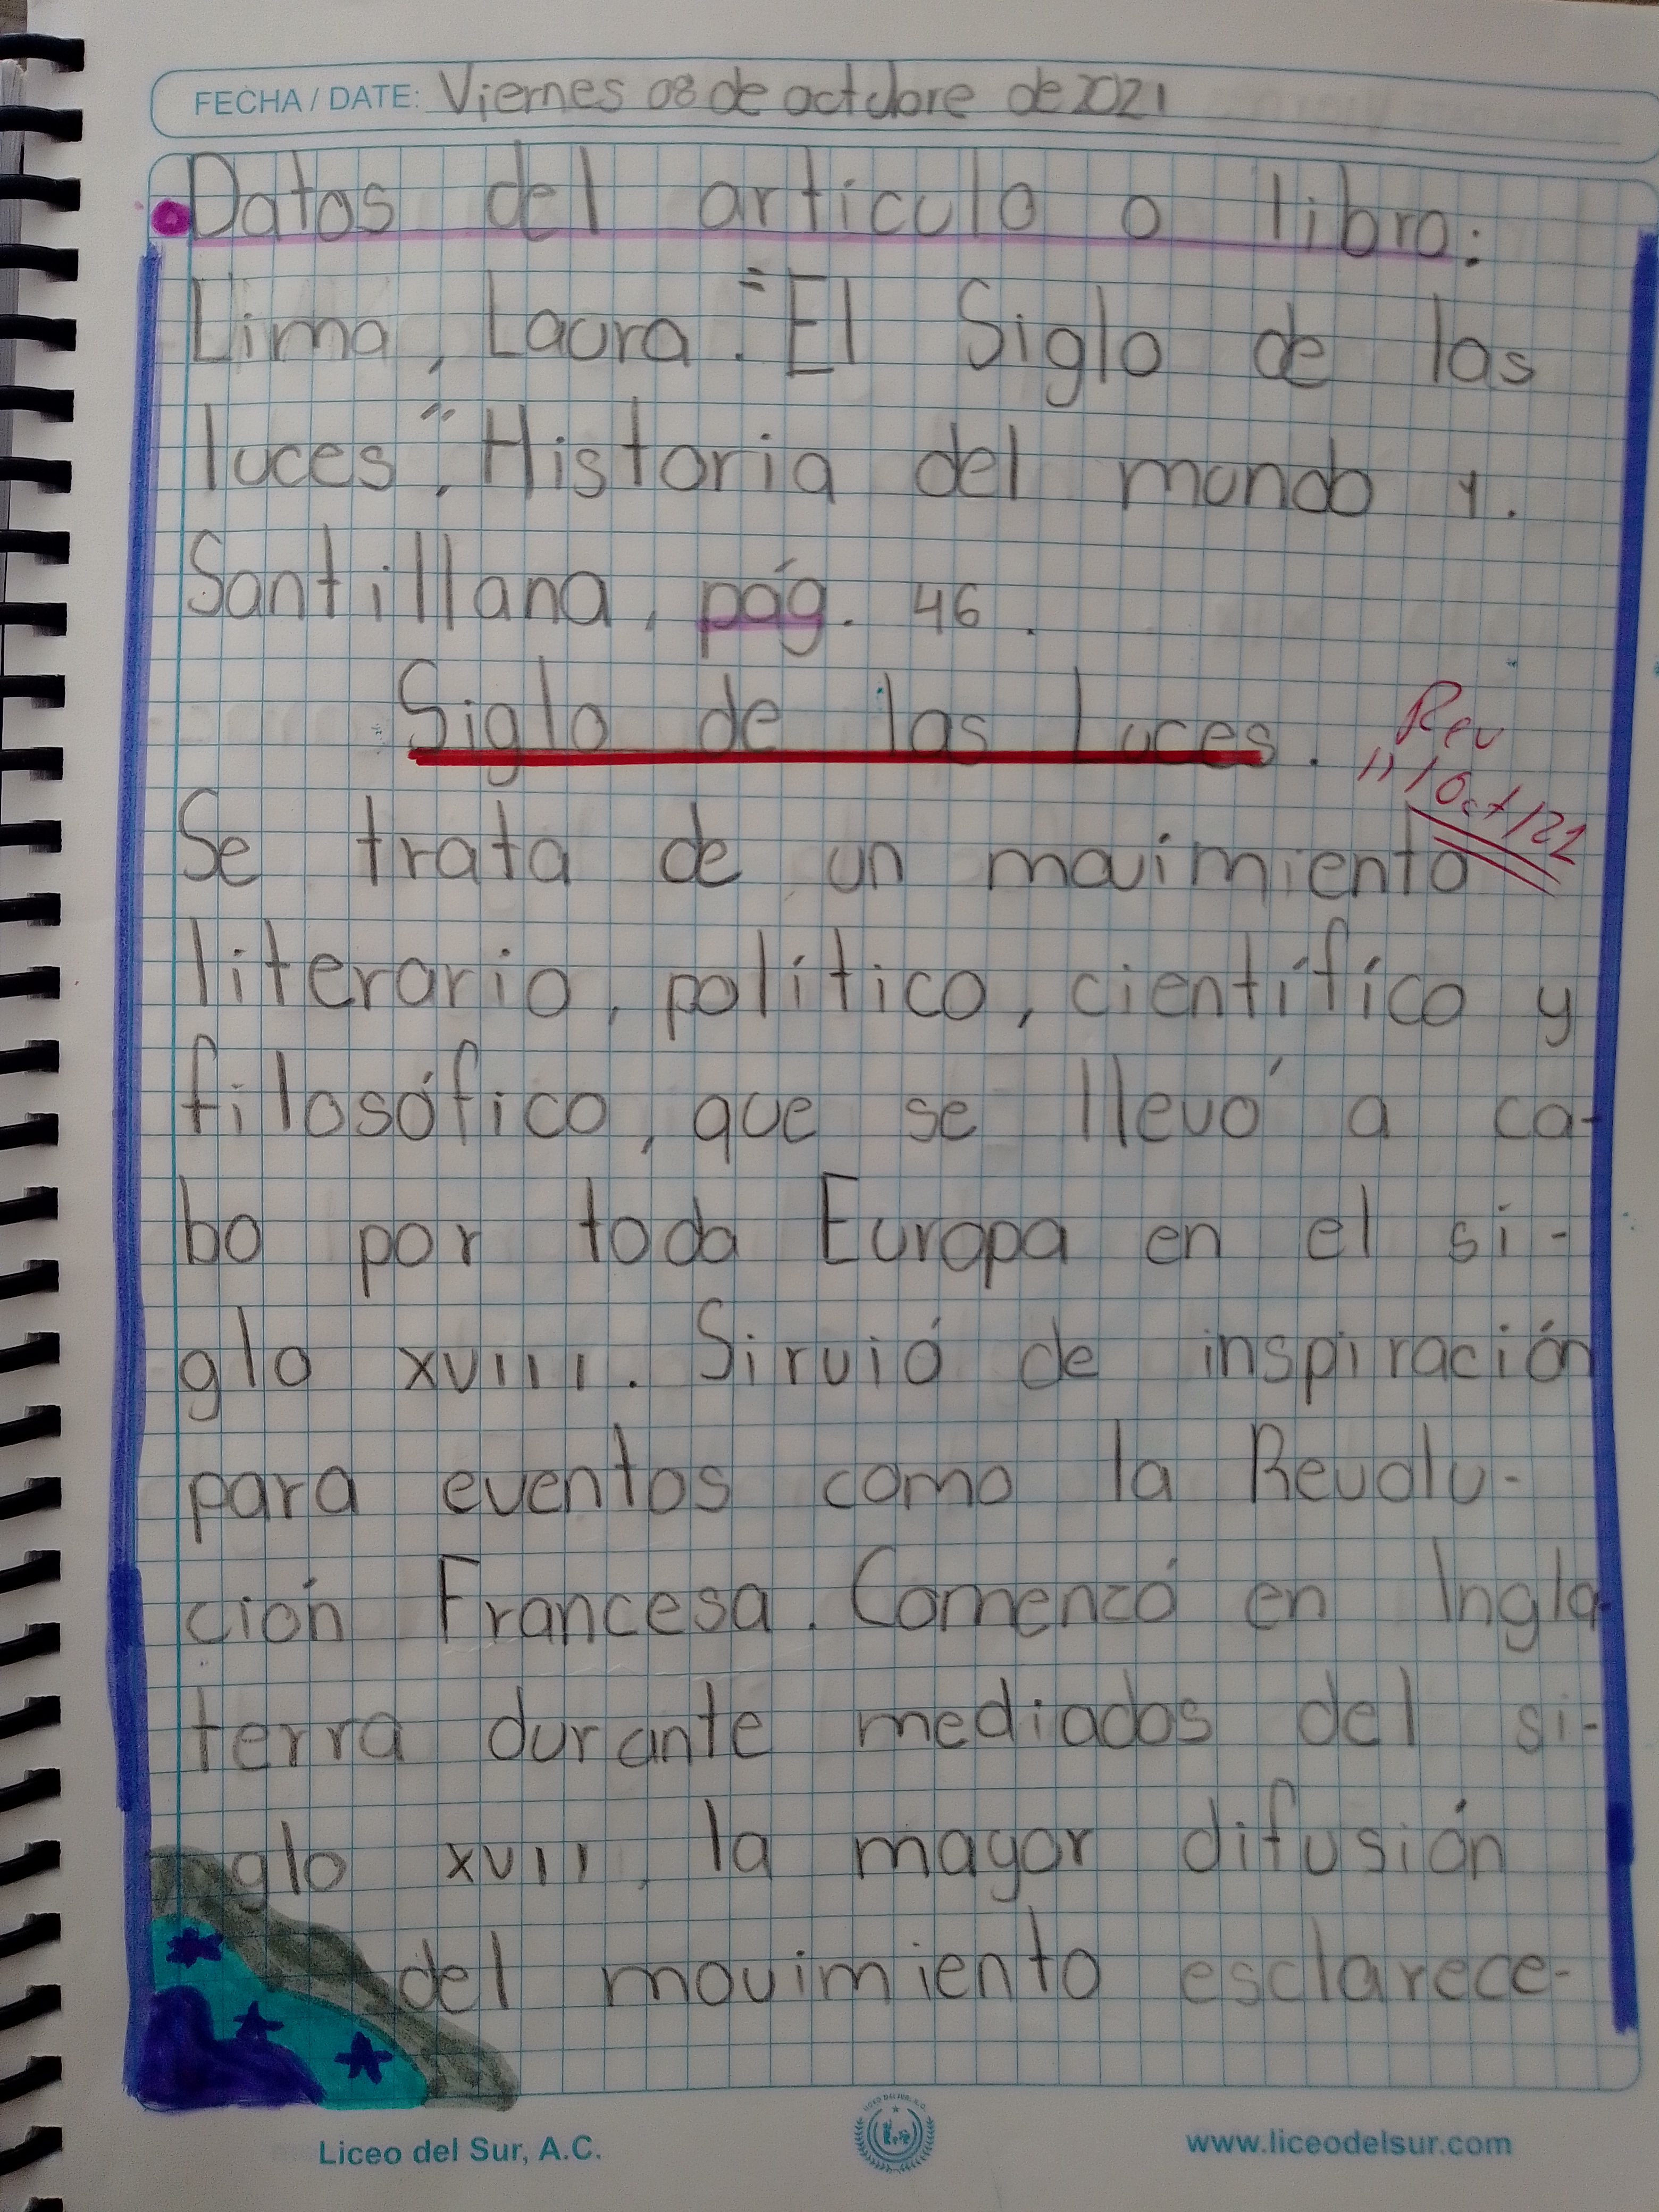 FECHA / DATE: Viernes 08 de octubre de 2021
Datos del artículo o libro:
Lima, Laura. "El Siglo de las
luces", Historia del mundo 1.
Santillana, pág. 46.
Siglo de las Luces.
Rev
11/Oct/21
Se trata de un movimiento
literario, político, científico y
filosófico, que se llevó a ca-
bo por toda Europa en el si-
glo XVIII. Sirvió de inspiración
para eventos como la Revolu-
ción Francesa. Comenzó en Ingla
terra durante mediados del si-
glo XVII, la mayor difusión
del movimiento esclarece-
LICEO DEL SUR, A.C.
Liceo del Sur, A.C.
www.liceodelsur.com